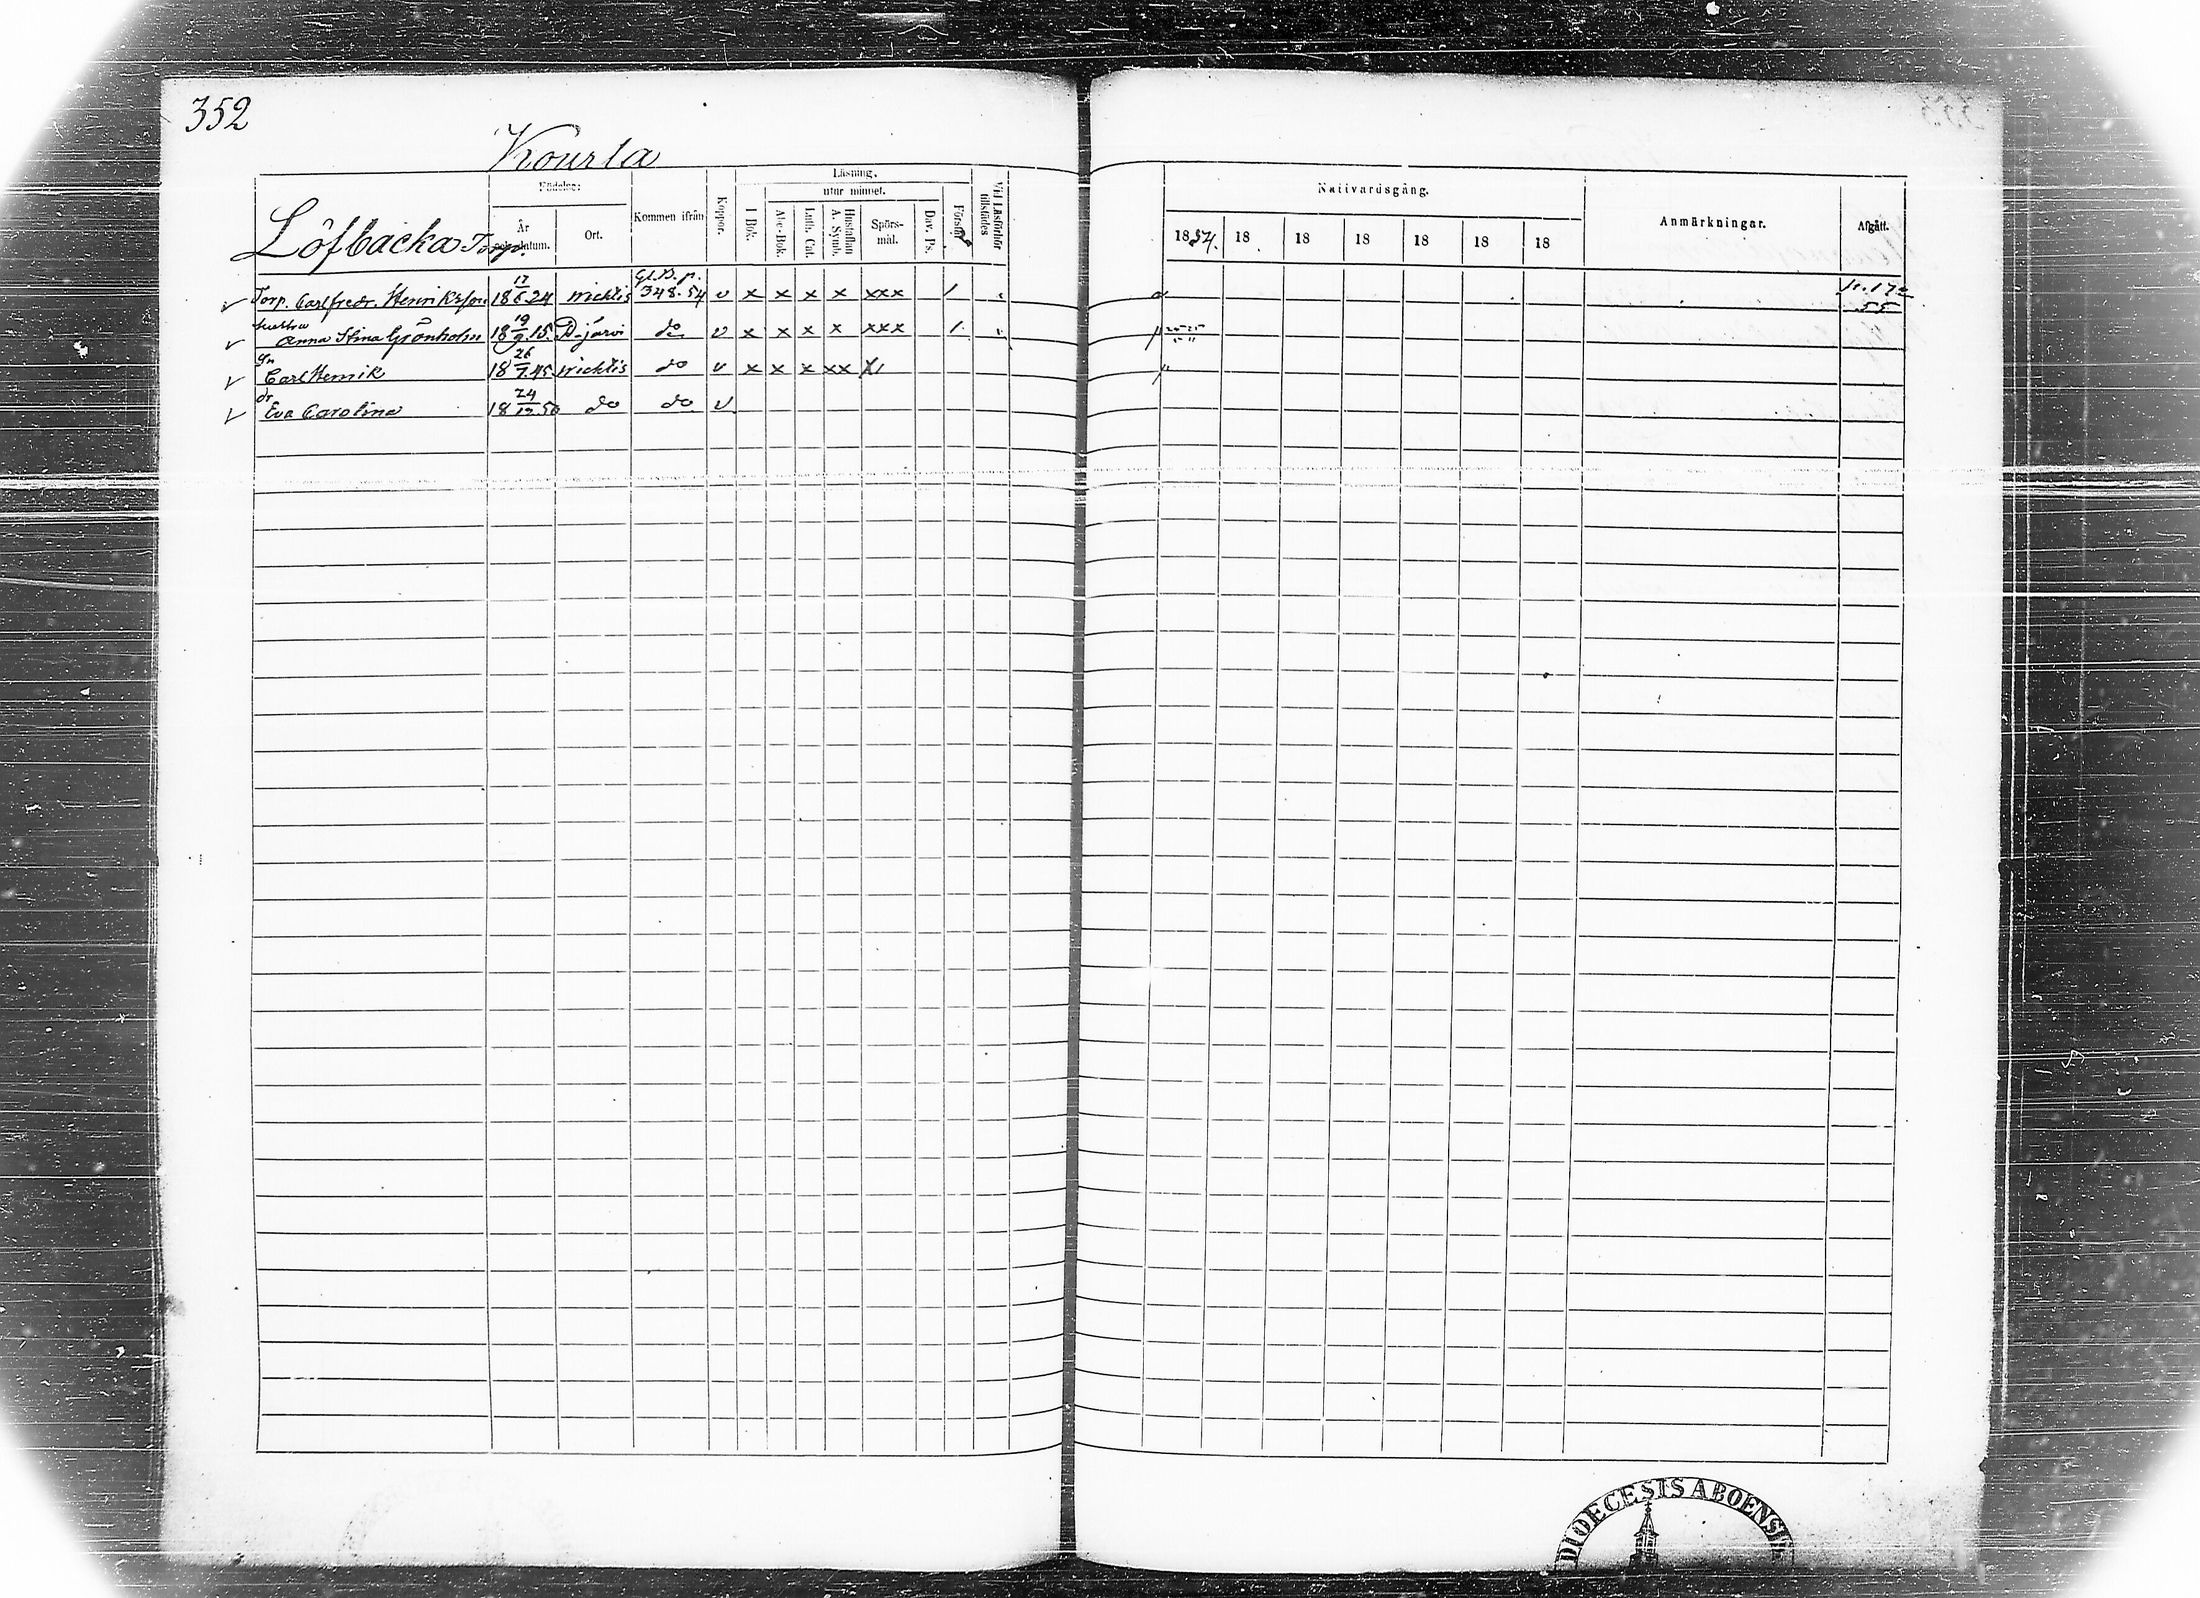 352
Kourla
Löfbacka Torp.
Födelse:
År och datum.
Ort.
Kommen ifrån
Koppor.
Läsning.
I Bok.
utur minnet.
Abc-Bok.
Luth. Cat.
Hustaflan A. Symb.
Spörs-mål.
Dav. Ps.
Förstånd
Vid Läsförhör tillstädes
Nattvardsgång.
1854. 18 18 18 18 18 18
Anmärkningar.
Afgått.
Torp. Carl Fredr. Henriksson 18 17/6 24 Wichtis Gl.B.p. 348. 54 v x x x x xxx 1
hustru Anna Stina Grönholm 18 19/9 15. D.järvi do v x x x x xxx 1.
Sn Carl Henrik 18 26/7 45 Wichtis do v x x x xx
dr Eva Carolina 18 24/12 50 do do v
55
DIOECESIS ABOENSIS